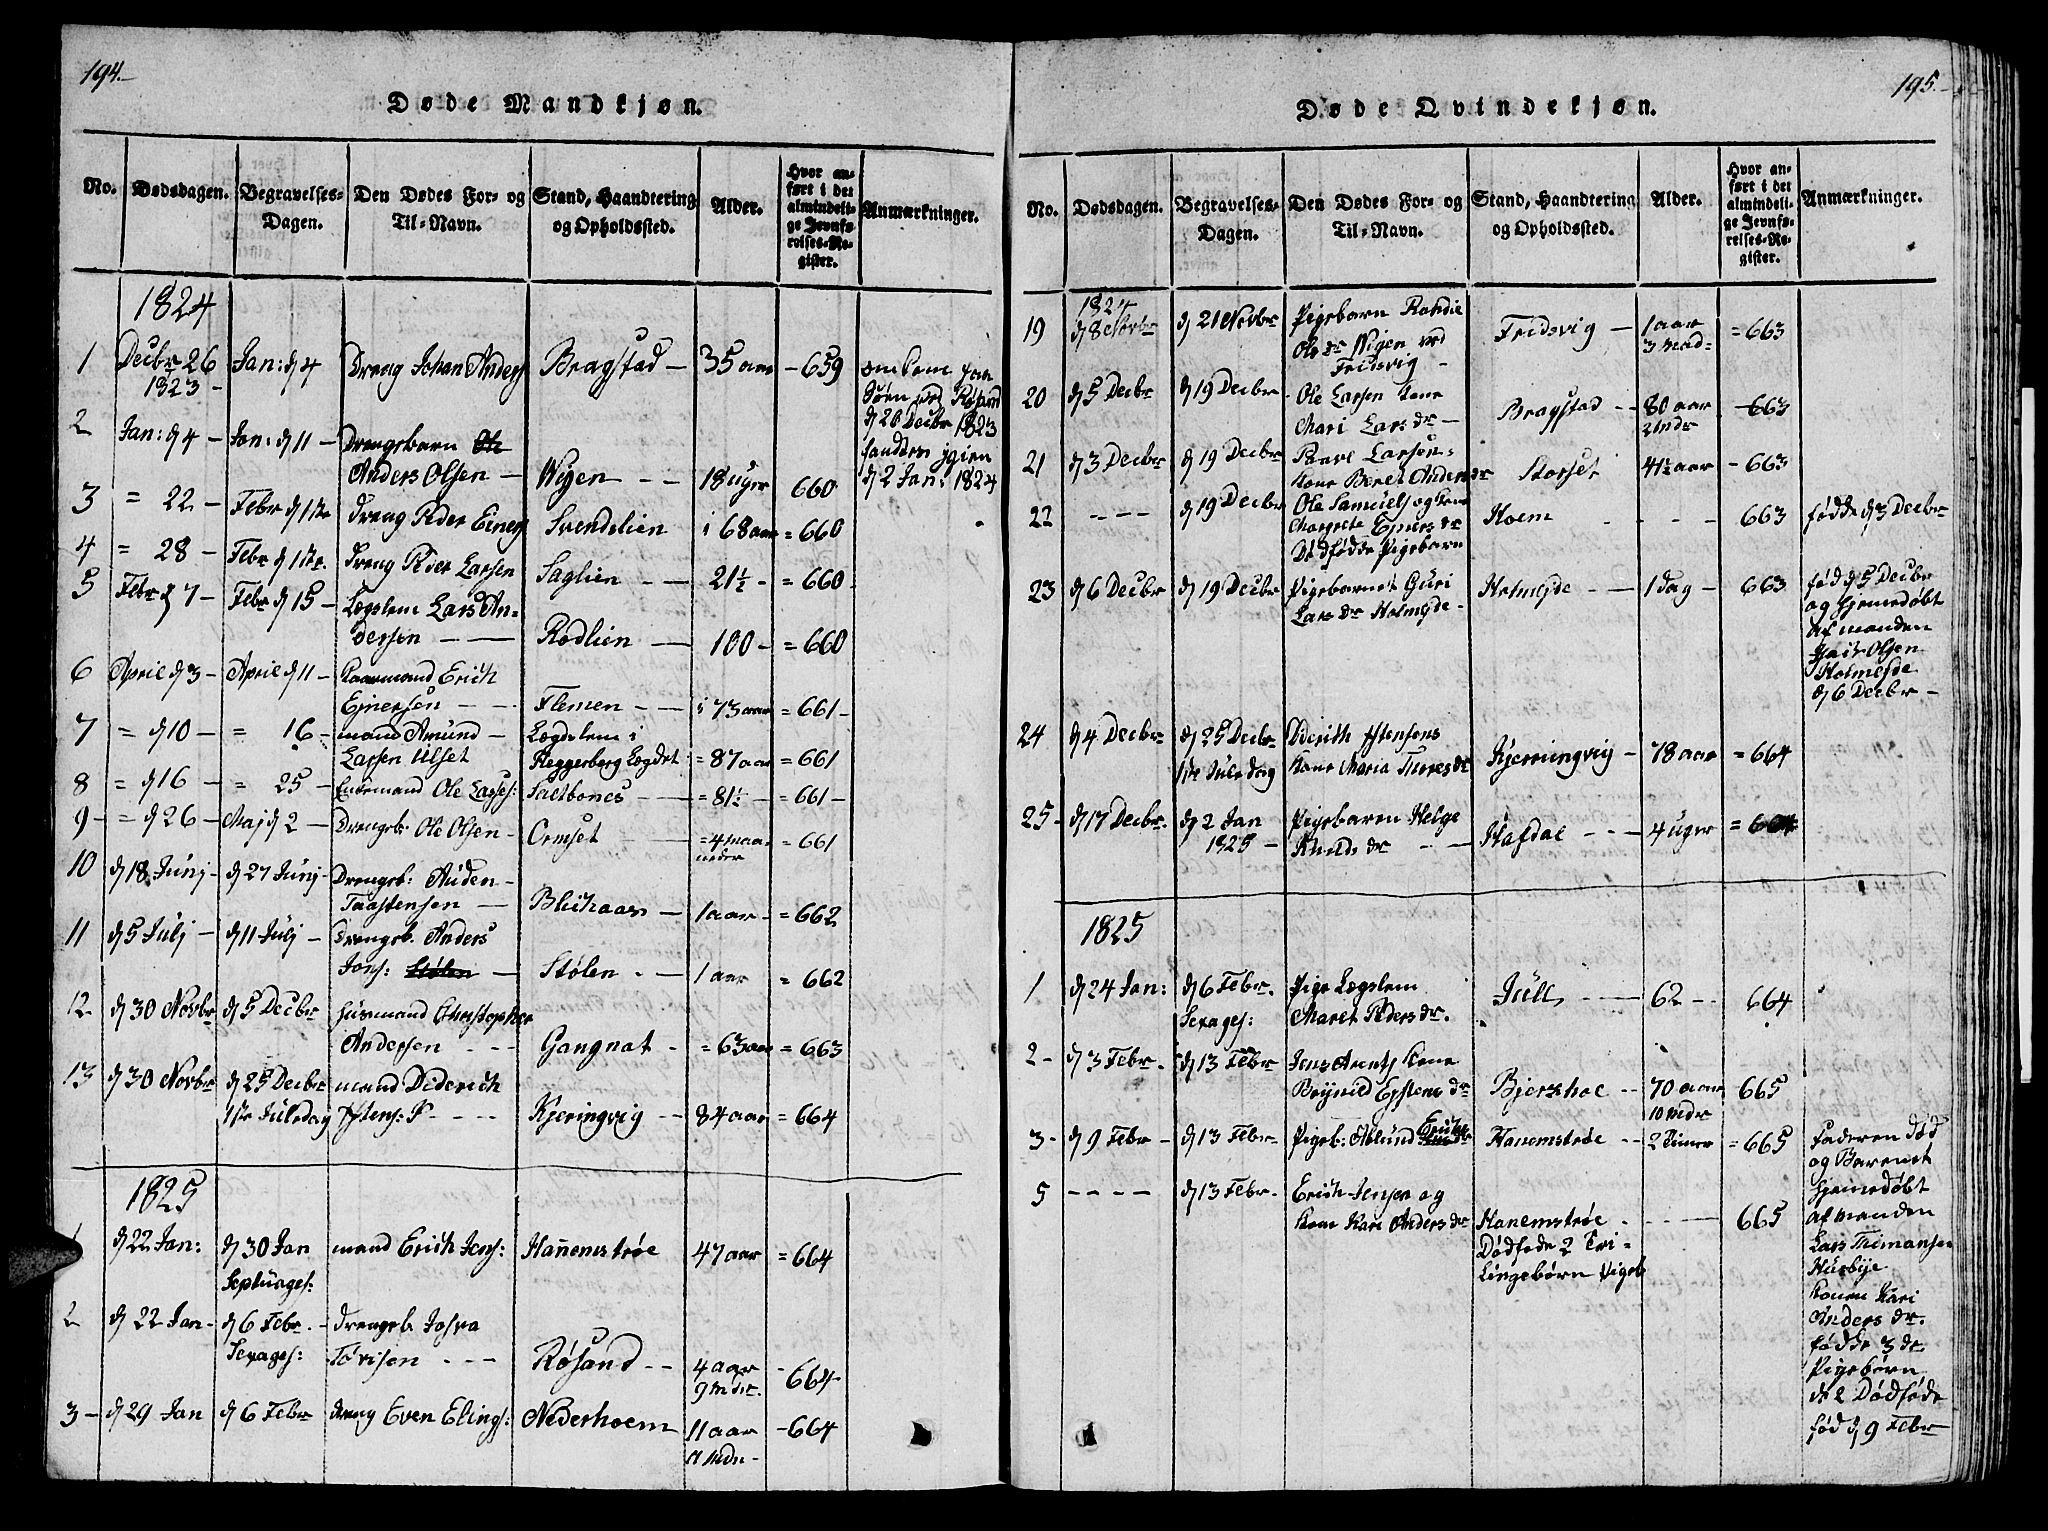 194.
Døde Mandkjøn.
No. Dødsdagen. Begravelses-Dagen. Den Dødes For- og Til-Navn. Stand, Haandtering og Opholdssted. Alder. Hvor anført i det almindelige Jevnførelses-Register. Anmærkninger.
1824
1 Decbr 26 1823 - Jan: d 4 Dreng Johan Anders Bragstad - 35 aar - 659 omkom paa Søen ved Røsand d 26 Decbr 1823 fandtes igien d 2 Jan: 1824
2 Jan: d 4 - Jan: d 11 - Drengebarn Anders Olsen - Wigen - - 18 uger 660
3 = 22 - Febr d 1ste Dreng Peder Einers Svendslien 68 aar = 660
4 = 28 - Febr d 1ste Dreng Peder Larsen Saglien - - 21½ - = 660
5 Febr d 7 - Febr d 15 - Lægslem Lars Andersen - - Rødlien - 100 - = 660
6 April d 3 - April d 11 - Kaarmand Erich Ejnersen - - Flemen - - 73 aar = 661 -
7 = d 10 - = 16 - mand Amund Larsen Ulset Lægdslem i Heggerberg Lægdet = 87 aar = 661
8 = d 16 - = 25 - Enkemand Ole Larses: Saltbones - - = 81½ - = 661 -
9 - = d 26 - Maj d 2 - Drengeb: Ole Olsen - Ormset - = 4 maaneder = 661
10 d 18 Junj - d 27 Junj - Drengeb: Auden Taastensen - Blichaas - 1 aar - = 662
11 d 5 Julj - d 11 Julj - Drengeb. Anders Jons: Stølen - Stølen - - 1 aar = 662
12 d 30 Novbr d 5 Decbr Husmand Christopher Andersen - - Gangnat - = 63 aar = 663
13 d 30 Novbr d 25 Decbr 1ste Juledag mand Diderich Kjeringvig - - 84 aar = 664
1825
1 d 22 Jan: d 30 Jan Septuages: mand Erich Jens: Hanemstrøe 47 aar = 664
2 d 22 Jan - d 6 Febr. - Sexages: Drengeb. Josva - - Røsand - - 4 aar 9 mdr. - 664 -
3 - d 29 Jan d 6 Febr Dreng Even Elings: Nederhoem 11 aar 11 mdr - - 664
195.
Døde Qvindekjøn.
No. Dødsdagen. Begravelses-Dagen. Den Dødes For- og Til-Navn. Stand, Haandtering og Opholdssted. Alder. Hvor anført i det almindelige Jevnførelses-Register. Anmærkninger.
1824
19 d 8 Novbr d 21 Novbr Pigebarn Randie Ols dr Wigen ved Fridsvig - Fridsvig - 1 aar 3 mad - = 663
20 d 5 Decbr d 19 Decbr - Ole Larsen kone Mari Lars dr - Bragstad - - 80 aar 2 mdr - 663
21 d 3 Decbr d 19 Decbr Paavel Larsens kone Beret Anders dr Storset 41½ aar - 663
22 - - - d 19 Decbr Ole Samuels og kone Margrete Ejners dr Dødfødde Pigebarn Hoem - - - - 663 fødde d 3 Decbr
23 d 6 Decbr d 19 Decbr Pigebarnet Guri Lars dr Holmejde - Holmejde - - 1 dag - 663 fød d 5 Decbr og hjemedøbt af manden Olsen Holmejde d 6 Decbr -
24 d 4 Decbr d 25 Decbr 1ste Juledag kone Maria Tures dr Kjerringvig - 78 aar = 664
25 - d 17 Decbr. d 2 Jan 1825 - Pigebaren Helge Knuds dr - - Hafdal - - - 4 uger = 664
1825
1 d 24 Jan: d 6 Febr. Sexages: Pige Lægslem Maret Peders dr. Jull - - 62 - - 664
2 - d 3 Febr. d 13 Febr Jens Arnts kone Bojnild Eystens dr Bjerzhoe - - 70 aar 10 mdr 665
3 - d 9 Febr - d 13 Febr - Pigeb: Ablund Erichs dr Hanemstrøe - - 2 Timer = 665 Faderen død og Barenet hjemedøbt af manden Lars Husbye
5 - - - - d 13 Febr - Erich Jenses og kone Kari Anders dr Hanemstrøe - Dødføde 2 Trilingebørn Pigeb - - 665 Konen Kari Anders dr. fødde 3 de Pigebørn de 2 Dødføde fød d 9 Febr